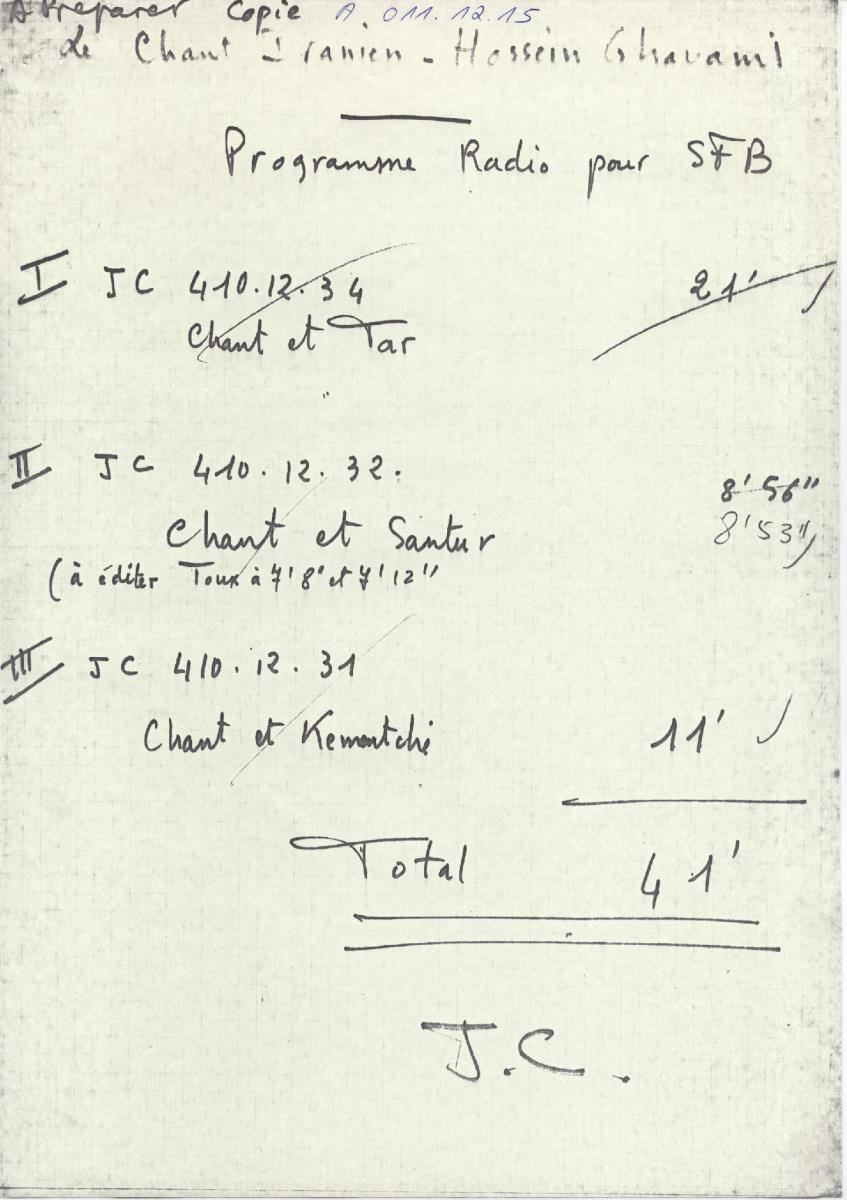 A Préparer Copie A. 011.12.15
Le Chant Iranien - Hossein Ghavami
Programme Radio pour SFB
I JC 410.12.34 21'
Chant et Tar
II JC 410.12.32. 8' 56"
8' 53"
Chant et Santur
(à éditer Toux à 7'8" et 7'12"
III JC 410.12.31
Chant et Kemantché 11'
Total 41'
J.C.